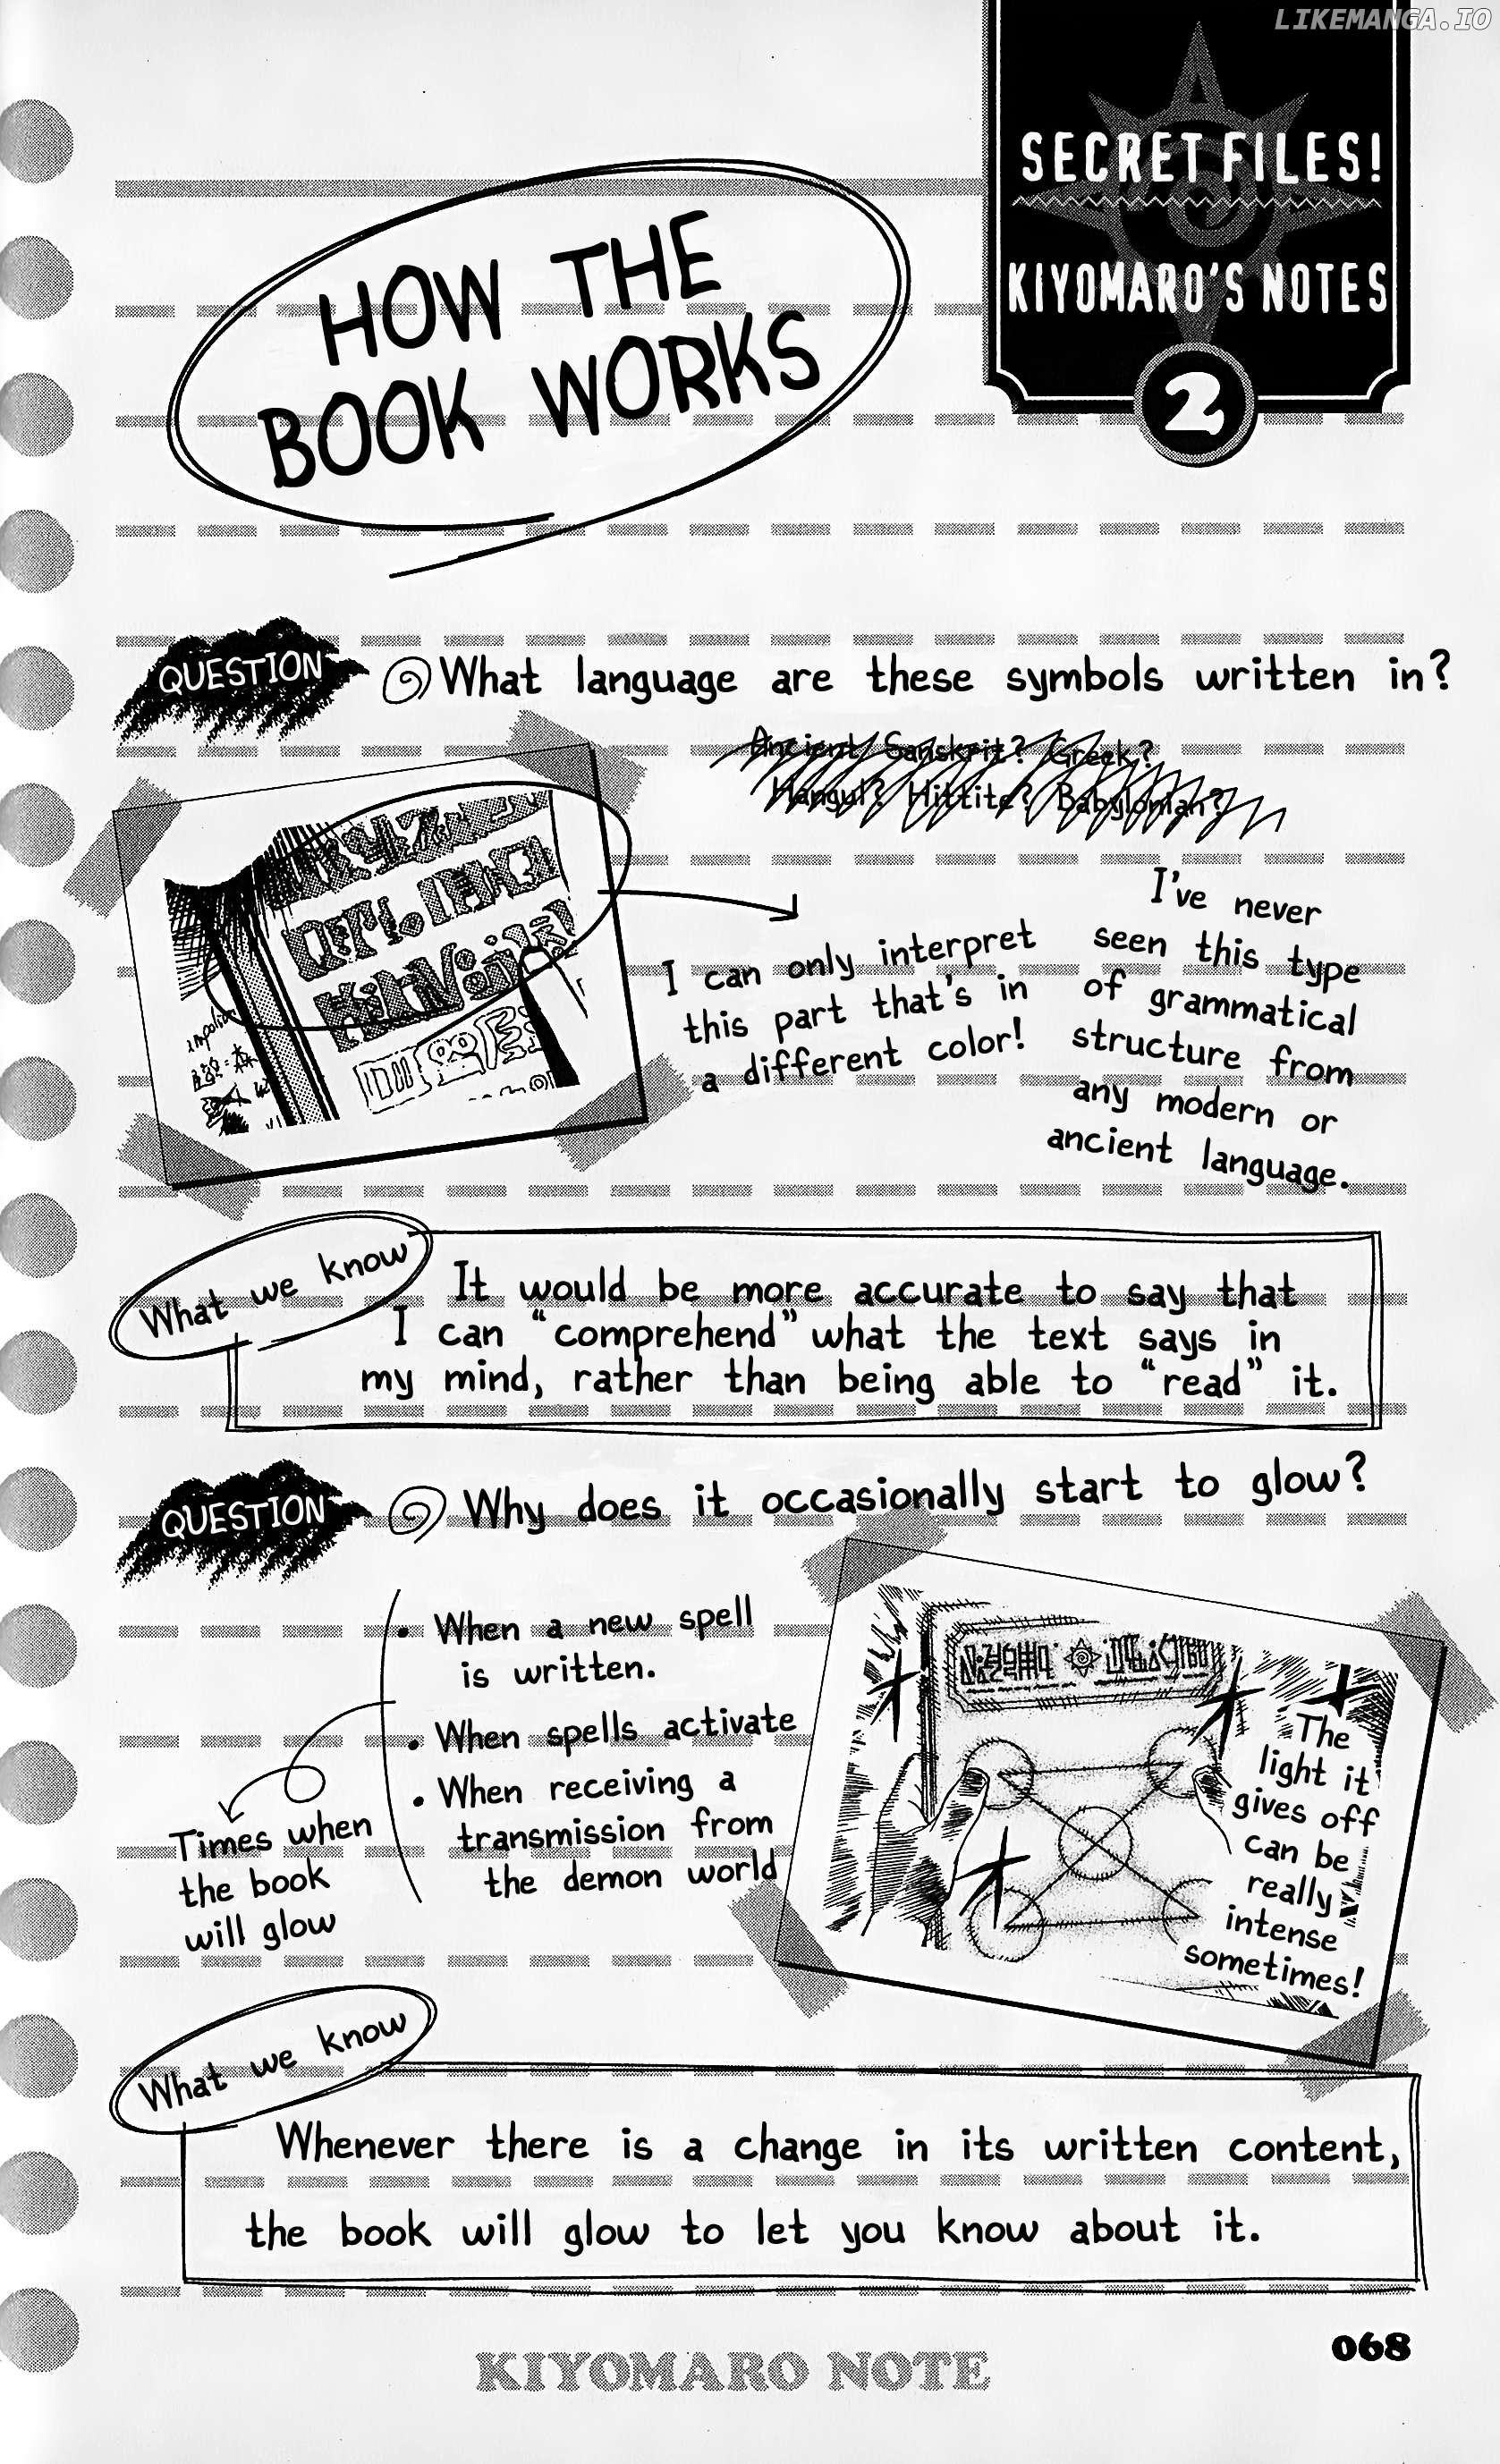 LIKEMANGA.IO
SECRET FILES!
KIYOMARO'S NOTES
2
HOW THE
BOOK WORKS
QUESTION
What language are these symbols written in?
Ancient Sanskrit? Greek?
Hangul? Hittite? Babylonian?
I can only interpret
this part that's in
a different color!
I've never
seen this type
of grammatical
structure from
any modern or
ancient language.
What we know
It would be more accurate to say that
I can "comprehend" what the text says in
my mind, rather than being able to "read" it.
QUESTION
Why does it occasionally start to glow?
• When a new spell
is written.
• When spells activate
• When receiving a
transmission from
the demon world
Times when
the book
will glow
The
light it
gives off
can be
really
intense
sometimes!
What we know
Whenever there is a change in its written content,
the book will glow to let you know about it.
068
KIYOMARO NOTE